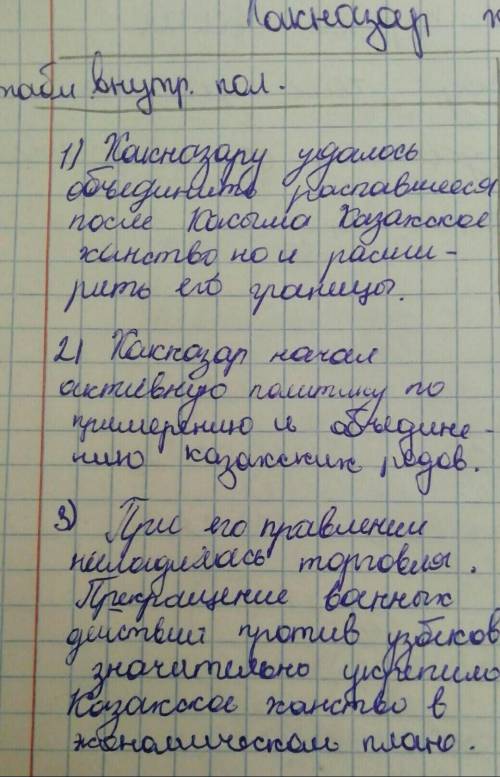 Хакназар
внутр. пол.
1) Хакназару удалось
объединить распавшееся
после Касыма Казахское
ханство но и расши-
рить его границы.
2) Хакназар начал
активную политику по
примерению и объедине-
нию казахских родов.
3) При его правлении
наладилась торговля.
Прекращение военных
действий против узбеков
значительно укрепило
Казахское ханство в
экономическом плане.